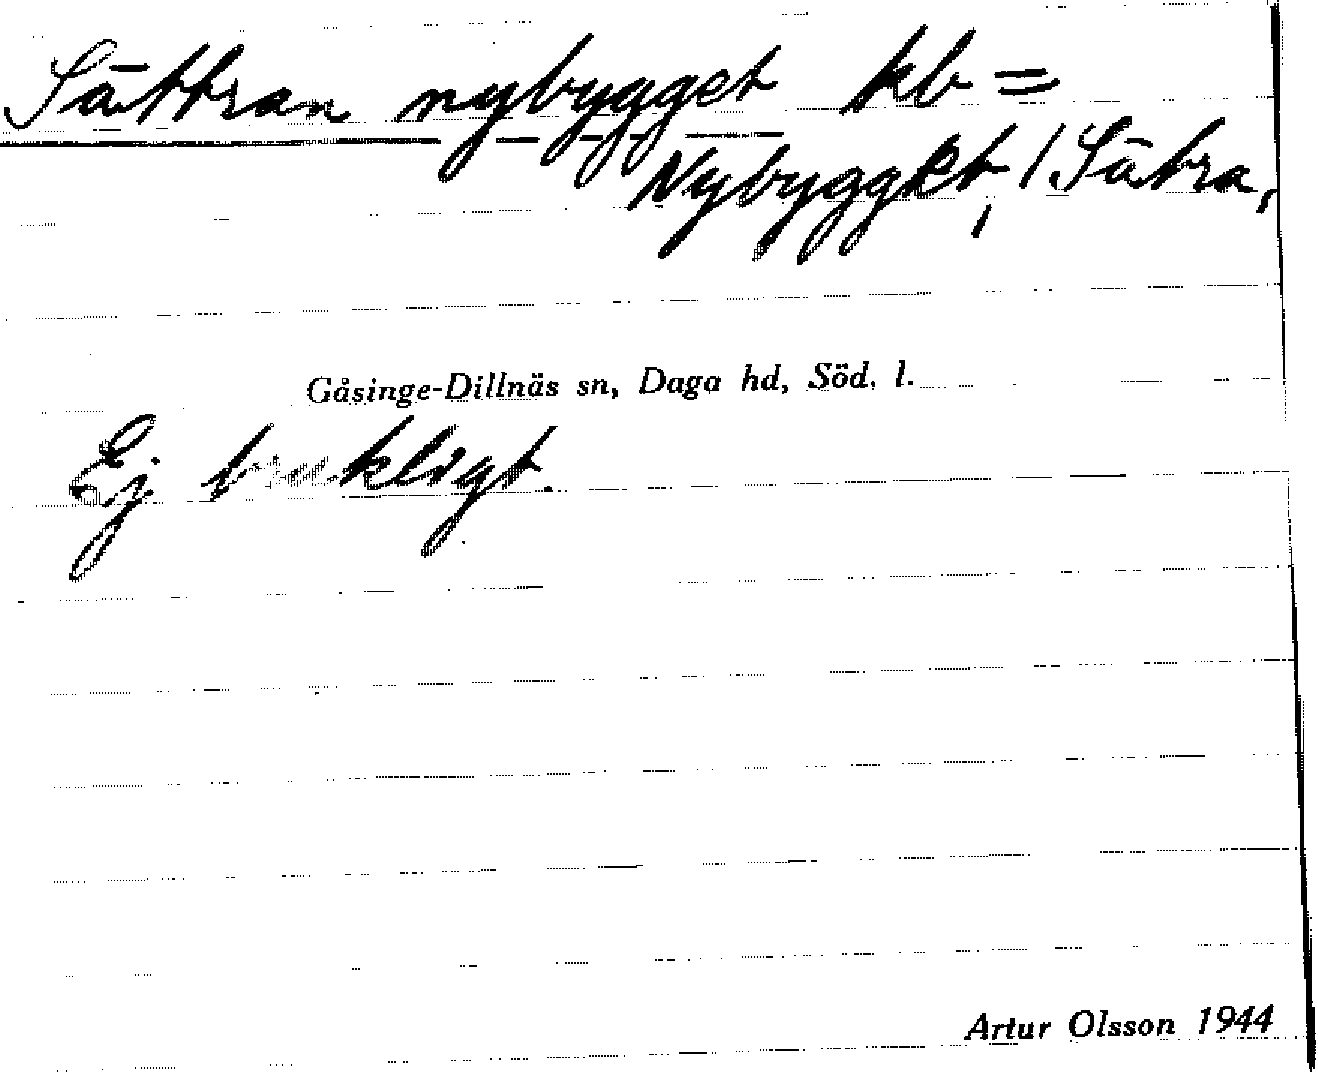 Sättran nybygget kb =
Nybyggkt, / Sätra,
Gåsinge-Dillnäs sn, Daga hd, Söd. l.
Ej brukligt.
Artur Olsson 1944